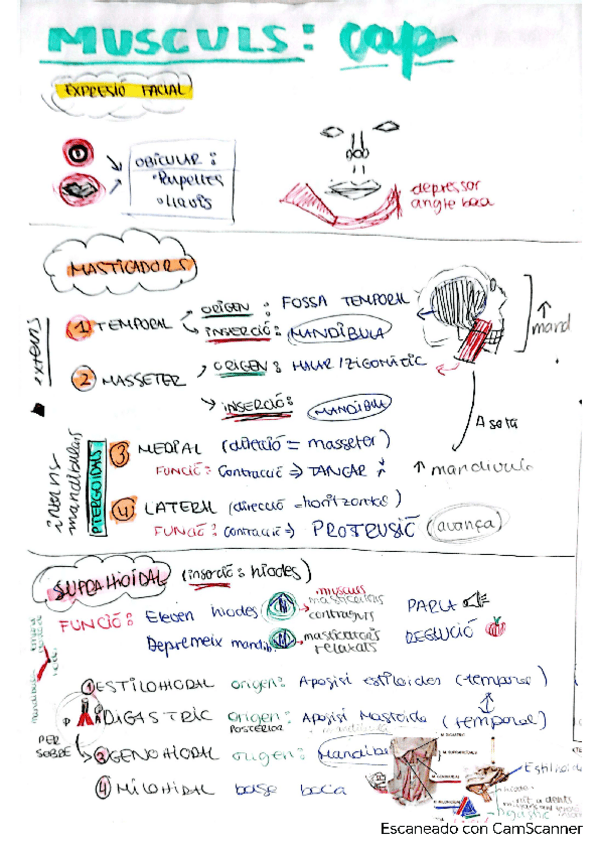 MUSCULS: cap
EXPRESIÓ FACIAL
OBICULAR:
Parpelles
llavis
depressor
angle boca
MASTICADORS
externs
1 TEMPORAL
ORIGEN: FOSSA TEMPORAL
INSERCIÓ: MANDÍBULA
↑ mand
2 MASSETER
ORIGEN: MAUR/ZIGOMÀTIC
INSERCIÓ: MANDÍBULA
A sota
interns
mandibulars
PTERGOIDALS
3 MEDIAL (direcció = masseter)
FUNCIÓ: Contracció ⇒ TANCAR
↑ mandivula
4 LATERAL (direcció = horizontal)
FUNCIÓ: contracció ⇒ PROTRUSIÓ (avança)
SUPRAHIOIDAL (inserció: hioides)
FUNCIÓ: Eleven hiodes → musculs
masticadors
contraguts
PARLA
Depremeix mandib → masticadors
relaxats
DEGLUCIÓ
1 ESTILOHIODAL origen: Apofisi estiloides (temporal)
DIGASTRIC origen: Apofisi Mastoide (temporal)
POSTERIOR
PER
SOBRE
3 GENOHIODAL origen: Mandibula
4 MILOHIDAL base boca
Estiloide
Escaneado con CamScanner